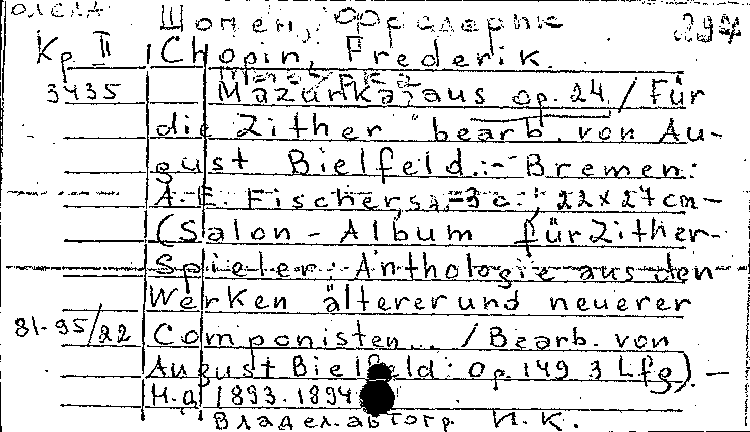 Шопен, Фредерик
Кр II Chopin, Frederik.
Мазурка
3435 Mazurka, aus op. 24 / Für
die Zither bearb. von Au-
gust Bielfeld. - Bremen:
A. E. Fischer, s.a. - 3 c.; 22 x 27 cm -
(Salon - Album für Zither-
Spieler: Anthologie aus den
Werken älterer und neuerer
81-95/22 Componisten... / Bearb. von
August Bielfeld: Op. 149 3 Lfg). -
Н.д 1893-1894
Владел. автогр И. К.